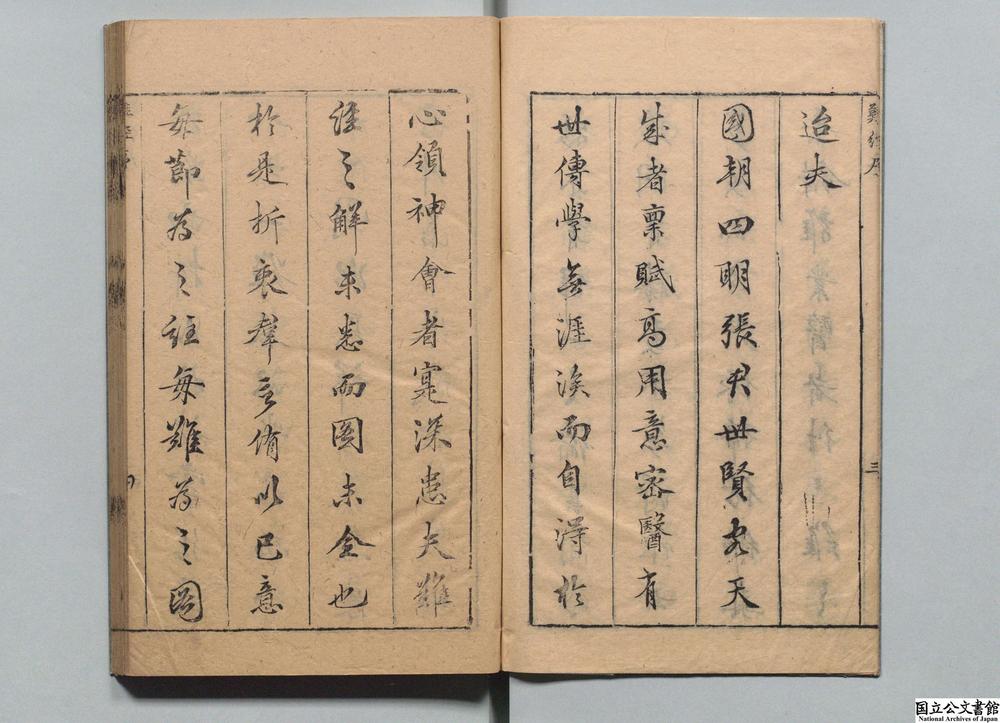 難經序
三
迨夫
國朝四明張君世賢者天
成者稟賦高用意密醫有
世傳學無涯涘而自得於
心領神會者寔深患夫難
註之解未悉而圖未全也
於是折衷羣言侑以己意
每節為之註每難為之圖
國立公文書館
National Archives of Japan